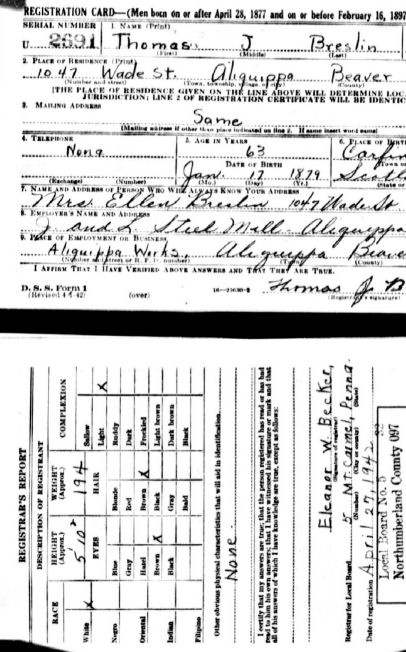 REGISTRATION CARD—(Men born on or after April 28, 1877 and on or before February 16, 1897
SERIAL NUMBER 1. NAME (Print)
U 2691 Thomas J Breslin
(First) (Middle) (Last)
2. PLACE OF RESIDENCE (Print)
1047 Wade St. Aliquippa Beaver
(Number and street) (Town, township, village, or city) (County)
[THE PLACE OF RESIDENCE GIVEN ON THE LINE ABOVE WILL DETERMINE LOC
JURISDICTION; LINE 2 OF REGISTRATION CERTIFICATE WILL BE IDENTIC
3. MAILING ADDRESS
Same
(Mailing address if other than place indicated on line 2. If same insert word same)
4. TELEPHONE 5. AGE IN YEARS 6. PLACE OF BIRT
None 63
DATE OF BIRTH (Town or
Jan. 17 1879 Scotl
(Exchange) (Number) (Mo.) (Day) (Yr.) (State or
7. NAME AND ADDRESS OF PERSON WHO WILL ALWAYS KNOW YOUR ADDRESS
Mrs. Ellen Breslin 1047 Wade St
8. EMPLOYER'S NAME AND ADDRESS
J. and L. Steel Mill - Aliquippa
9. PLACE OF EMPLOYMENT OR BUSINESS
Aliquippa Works, Aliquippa Beaver
(Number and street or R. F. D. number) (Town) (County)
I AFFIRM THAT I HAVE VERIFIED ABOVE ANSWERS AND THAT THEY ARE TRUE.
D. S. S. Form 1
(Revised 4-1-42) (over) Thomas J. B
(Registrant's signature)
REGISTRAR'S REPORT
DESCRIPTION OF REGISTRANT
RACE HEIGHT (Approx.) WEIGHT (Approx.) COMPLEXION
5'10" 194 Sallow
EYES HAIR Light X
White X Blue Blonde Ruddy
Negro Gray Red Dark
Oriental Hazel Brown X Freckled
Indian Brown X Black Light brown
Filipino Black Gray Dark brown
Bald Black
Other obvious physical characteristics that will aid in identification
None.
I certify that my answers are true; that the person registered has read or has had
read to him his own answers; that I have witnessed his signature or mark and that
all of his answers of which I have knowledge are true, except as follows:
Eleanor W. Becker,
(Signature of registrar)
Registrar for Local Board 5 Mt. Carmel, Penna.
(Number) (City or county) (State)
Date of registration April 27, 1942
Local Board No. 5
Northumberland County 097